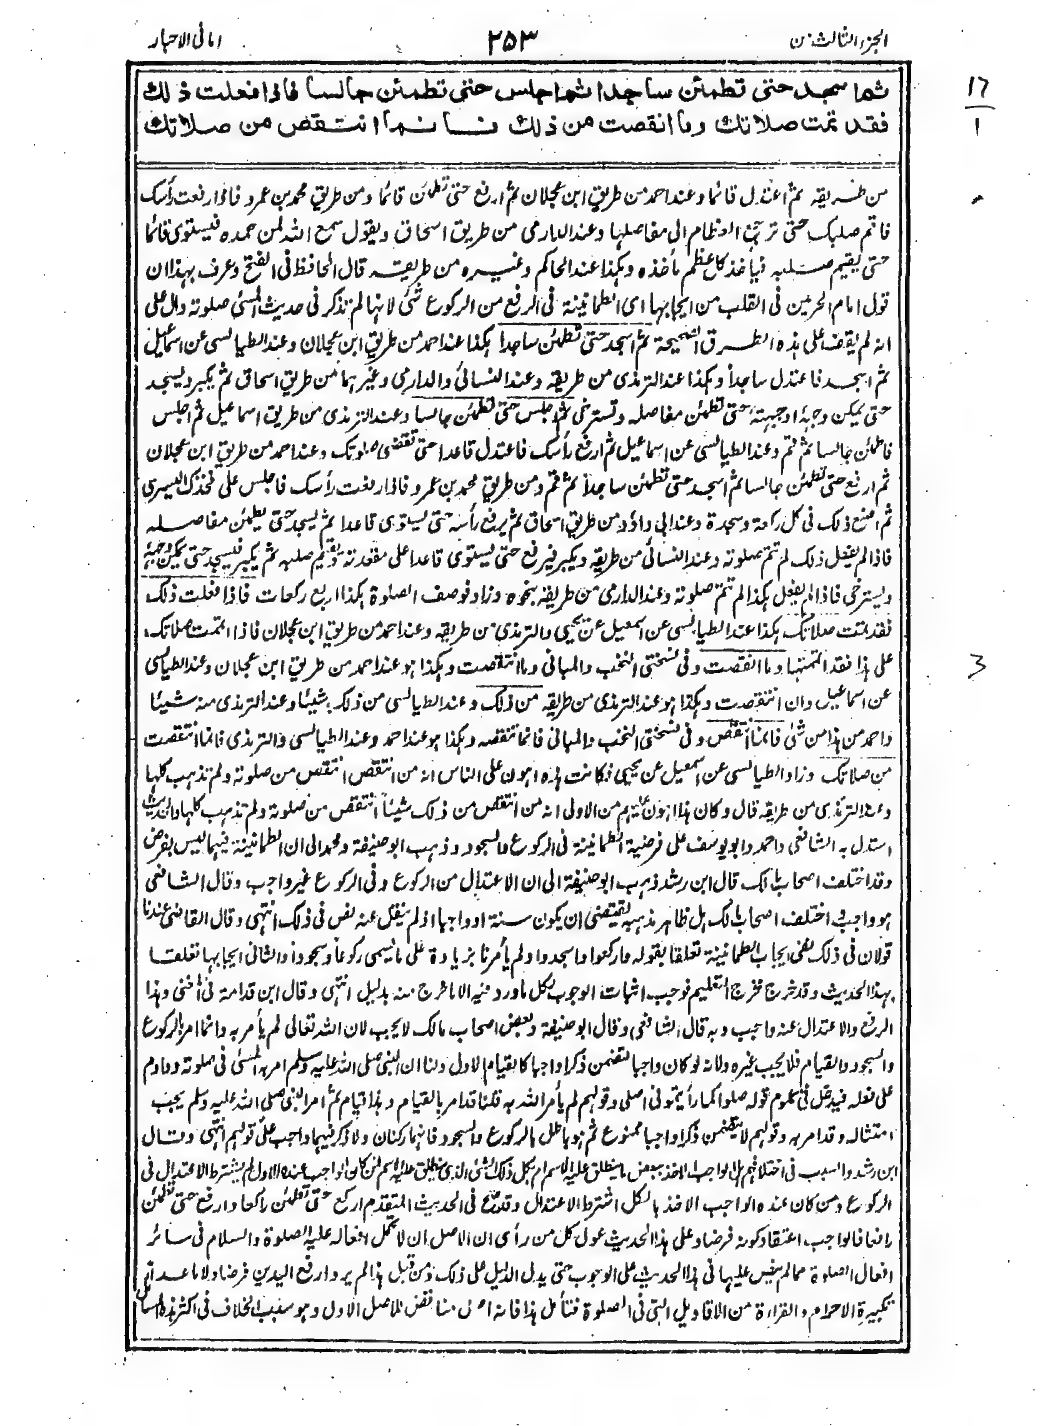 الجزء الثالث من
۲۵۳
امانی الاحبار
ثم اسجد حتى تطمئن ساجدا ثم اجلس حتى تطمئن جالسا فاذا فعلت ذلك
فقد تمت صلاتك وما انقصت من ذلك فانما انتقص من صلاتك
من طريقه ثم اعتدل قائما وعند احمد من طريق ابن عجلان ثم ارفع حتى تطمئن قائما ومن طريق محمد بن عمرو فاذا رفعت رأسك
فاقم صلبك حتى ترجع العظام الى مفاصلها وعند الدارمى من طريق اسحاق ويقول سمع الله لمن حمده فيستوى قائما
حتى يقيم صلبه فيأخذ كل عظم مأخذه وهكذا عند الحاكم وغيره من طريقه قال الحافظ فى الفتح وعرف بهذا ان
قول امام الحرمين فى القلب من ايجابها اى الطمانينة فى الرفع من الركوع شئ لانها لم تذكر فى حديث المسئ صلوته دال على
انه لم يقف على هذه الطرق الصحيحة ثم اسجد حتى تطمئن ساجدا هكذا عند احمد من طريق ابن عجلان وعند الطيالسى عن اسماعيل
ثم اسجد فاعتدل ساجدا وهكذا عند الترمذى من طريقه وعند النسائى والدارمى وغيرهما من طريق اسحاق ثم يكبر ويسجد
حتى يمكن وجهه او جبهته حتى تطمئن مفاصله وتسترخى ثم اجلس حتى تطمئن جالسا وعند الترمذى من طريق اسماعيل ثم اجلس
فاطمئن جالسا ثم قم وعند الطيالسى عن اسماعيل ثم ارفع رأسك فاعتدل قاعدا حتى تقضى صلوتك وعند احمد من طريق ابن عجلان
ثم ارفع حتى تطمئن جالسا ثم اسجد حتى تطمئن ساجدا ثم قم ومن طريق محمد بن عمرو فاذا رفعت رأسك فاجلس على فخذك اليسرى
ثم اصنع ذلك فى كل ركعة وسجدة وعند ابى داؤد من طريق اسحاق ثم يرفع رأسه حتى يستوى قاعدا ثم يسجد حتى يطمئن مفاصله
فاذا لم يفعل ذلك لم تتم صلوته وعند النسائى من طريقه ويكبر فيرفع حتى يستوى قاعدا على مقعدته ويقيم صلبه ثم يكبر فيسجد حتى يمكن وجهه
ويسترخى فاذا لم يفعل هكذا لم تتم صلوته وعند الدارمى من طريقه بنحوه وزاد فوصف الصلوة هكذا اربع ركعات فاذا فعلت ذلك
فقد تمت صلاتك هكذا عند الطيالسى عن اسمعيل عن يحيى والترمذى من طريقه وعند احمد من طريق ابن عجلان فاذا اتممت صلاتك
على هذا فقد اتممتها وما انقصت وفى نسختى النخب والمبانى وما انتقصت وهكذا هو عند احمد من طريق ابن عجلان وعند الطيالسى
عن اسماعيل وان انتقصت وهكذا هو عند الترمذى من طريقه من ذلك وعند الطيالسى من ذلك شيئا وعند الترمذى منه شيئا
واحمد من هذا من شئ فانما انتقص وفى نسختى النخب والمبانى فانما تنقصه وهكذا هو عند احمد وعند الطيالسى والترمذى فانما انتقصت
من صلاتك وزاد الطيالسى عن اسمعيل عن يحيى فكانت هذه اهون على الناس انه من انتقص انتقص من صلوته ولم تذهب كلها
وعند الترمذى من طريقه قال وكان هذا اهون عليهم من الاولى انه من انتقص من ذلك شيئا انتقص من صلوته ولم تذهب كلها والحديث
استدل به الشافعى واحمد وابو يوسف على فرضية الطمانينة فى الركوع والسجود وذهب ابو حنيفة ومحمد الى ان الطمانينة فيهما ليس بفرض
وقد اختلف اصحاب مالك قال ابن رشد ذهب ابو حنيفة الى ان الاعتدال من الركوع وفى الركوع غير واجب وقال الشافعى
هو واجب واختلف اصحاب مالك هل ظاهر مذهبه يقتضى ان يكون سنة او واجبا اذ لم ينقل عنه نص فى ذلك انتهى وقال القاضى عندنا
قولان فى ذلك نفى ايجاب الطمانينة تعلقا بقوله واركعوا واسجدوا ولم يأمرنا بزيادة على ما يسمى ركوعا وسجودا والثانى ايجابها تعلقا
بهذا الحديث وقد خرج مخرج التعليم فوجب اثبات الوجوب لكل ما ورد فيه الا ما خرج منه بدليل انتهى وقال ابن قدامة فى المغنى وهذا
الرفع والاعتدال عنه واجب وبه قال الشافعى وقال ابو حنيفة وبعض اصحاب مالك لا يجب لان الله تعالى لم يأمر به وانما امر بالركوع
والسجود والقيام فلا يجب غيره ولانه لو كان واجبا لتضمن ذكرا واجبا كالقيام الاول ولنا ان النبى صلى الله عليه وسلم امر به المسئ فى صلوته وداوم
على فعله فيدخل فى عموم قوله صلوا كما رأيتمونى اصلى وقولهم لم يأمر الله به قلنا قد امر بالقيام وهذا قيام ثم امر النبى صلى الله عليه وسلم يجب
امتثاله وقد امر به وقولهم لا يتضمن ذكرا واجبا ممنوع ثم هو باطل بالركوع والسجود فانهما ركنان ولا ذكر فيهما واجب على قولهم انتهى وقال
ابن رشد والسبب فى اختلافهم هل الواجب الاخذ ببعض ما ينطلق عليه الاسم ام بكل ذلك الشئ الذى ينطلق عليه الاسم فمن كان الواجب عنده الاول لم يشترط الاعتدال فى
الركوع ومن كان عنده الواجب الاخذ بالكل اشترط الاعتدال وقد صح فى الحديث المتقدم اركع حتى تطمئن راكعا وارفع حتى تطمئن
رافعا فالواجب اعتقاد كونه فرضا وعلى هذا الحديث عول كل من رأى ان الاصل ان لا تحمل افعاله عليه الصلوة والسلام فى سائر
افعال الصلوة مما لم ينص عليها فى هذا الحديث على الوجوب حتى يدل الدليل على ذلك ومن قبل هذا لم يروا رفع اليدين فرضا ولا ما عدا
تكبيرة الاحرام والقراءة من الاقاويل التى فى الصلوة فتأمل هذا فانه اصل مناقض للاصل الاول وهو سبب الخلاف فى اكثر هذه المسائل